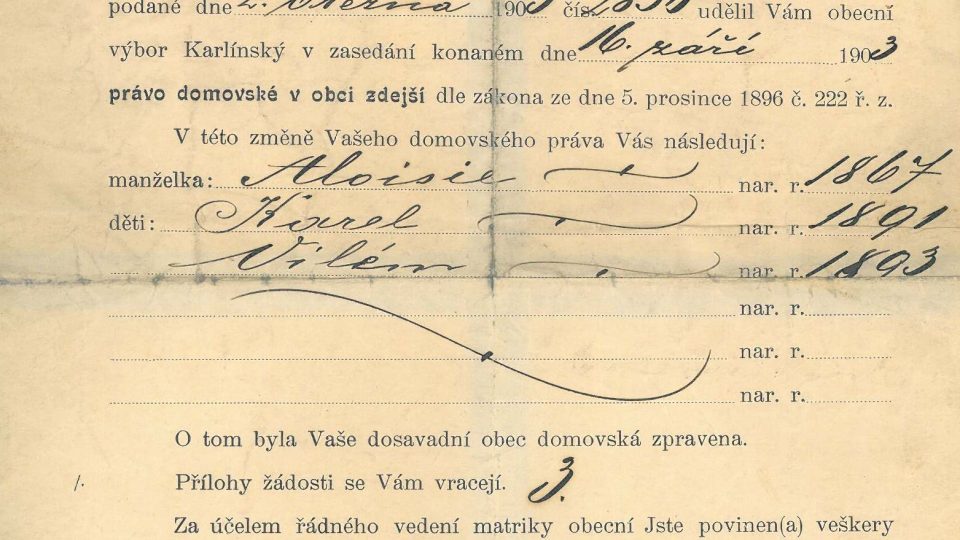 podané dne 2. června 1903 čís. udělil Vám obecní
výbor Karlínský v zasedání konaném dne 16. září 1903
právo domovské v obci zdejší dle zákona ze dne 5. prosince 1896 č. 222 ř. z.
V této změně Vašeho domovského práva Vás následují:
manželka: Aloisie nar. r. 1867
děti: Karel nar. r. 1891
Vilém nar. r. 1893
nar. r.
nar. r.
nar. r.
O tom byla Vaše dosavadní obec domovská zpravena.
/. Přílohy žádosti se Vám vracejí. 3.
Za účelem řádného vedení matriky obecní Jste povinen(a) veškery